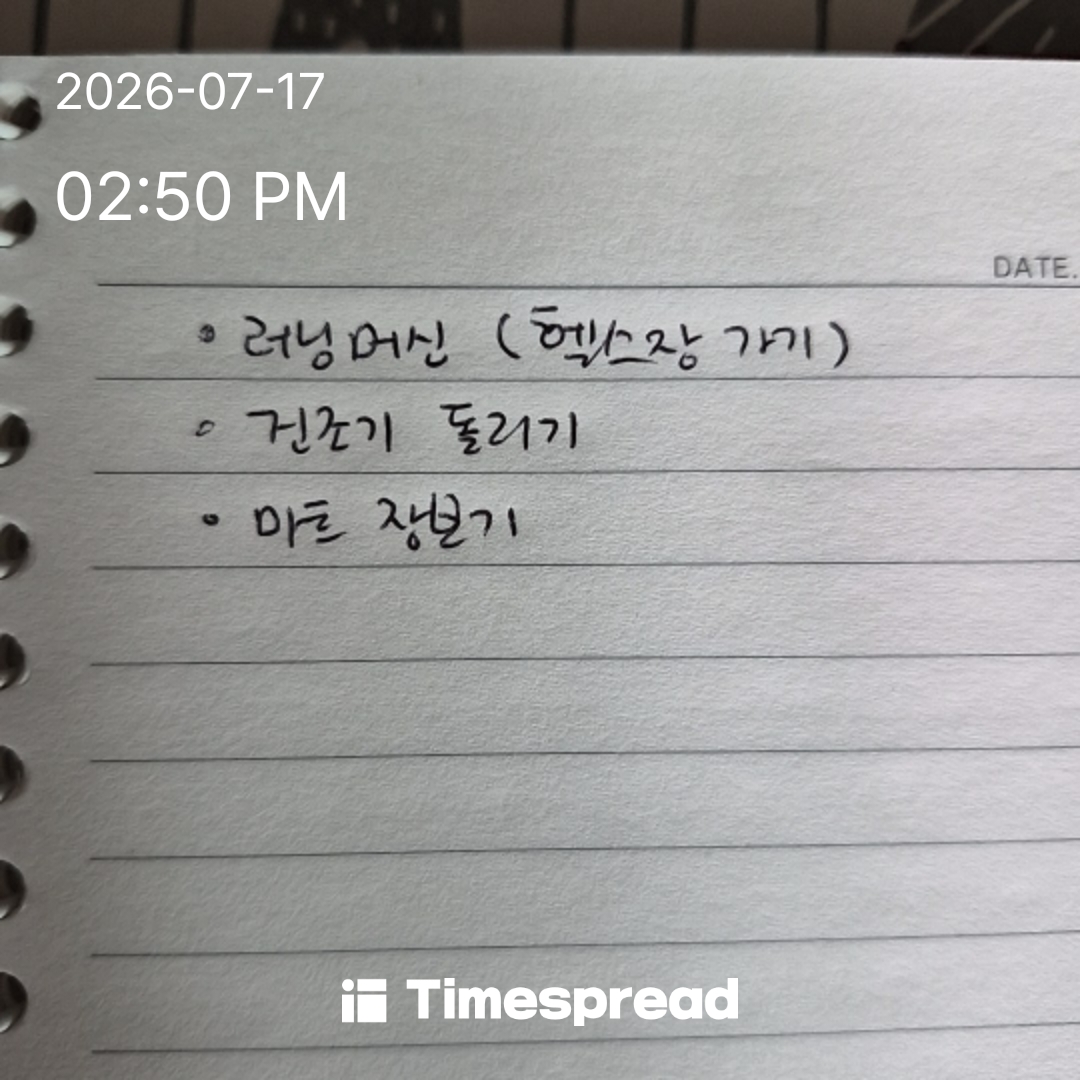 2026-07-17
02:50 PM
DATE.
• 러닝머신 (헬스장 가기)
• 건조기 돌리기
• 마트 장보기
Timespread